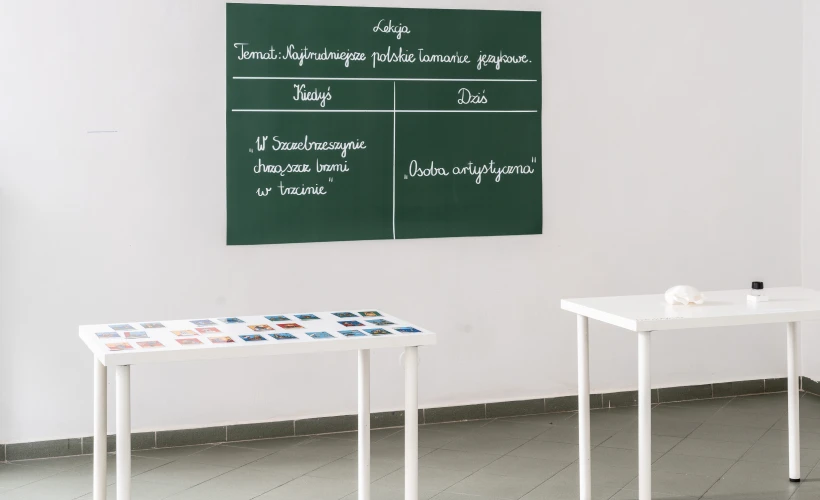 Lekcja
Temat: Najtrudniejsze polskie łamańce językowe.
Kiedyś
Dziś
„W Szczebrzeszynie
chrząszcz brzmi
w trzcinie"
„Osoba artystyczna"